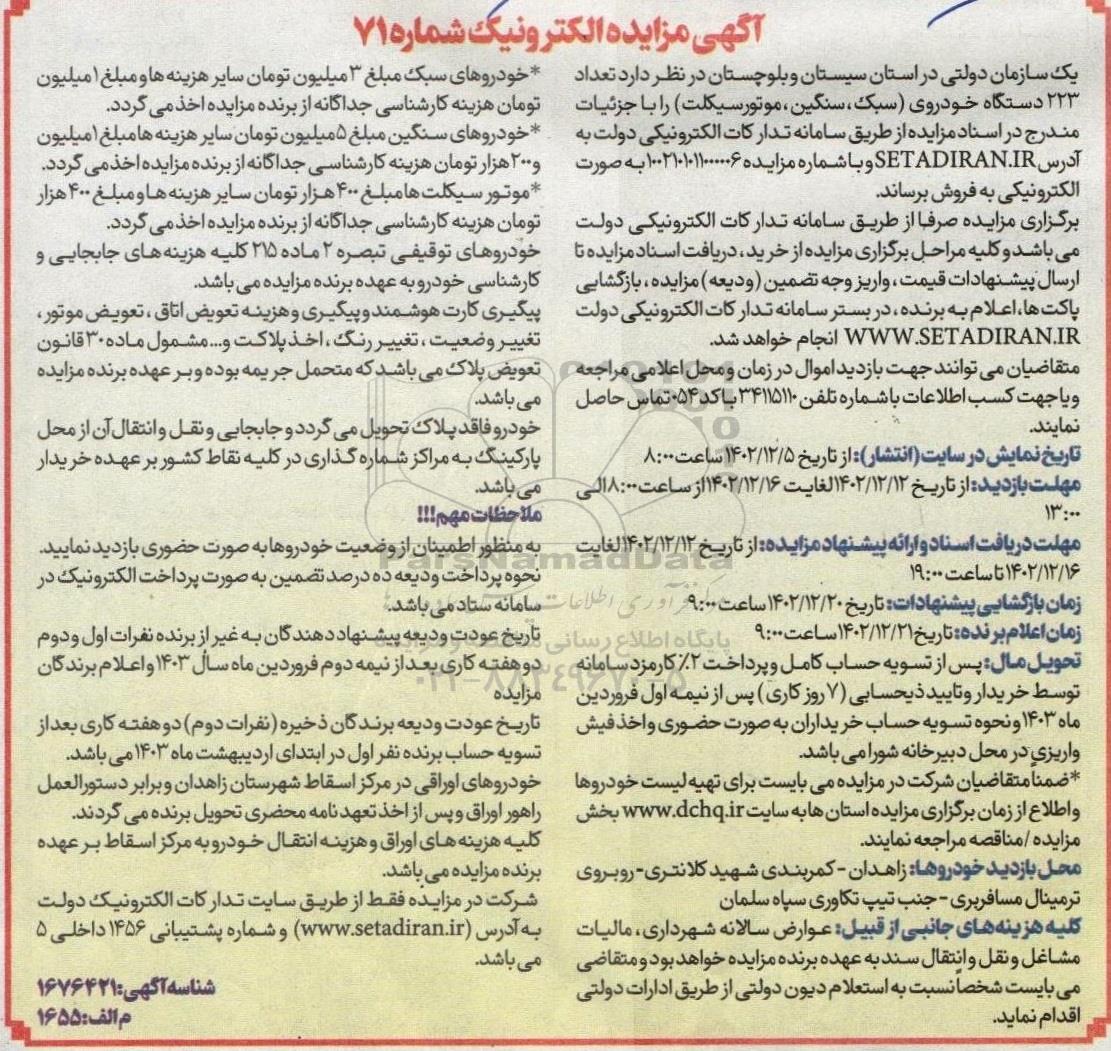 آگهی مزایده الکترونیک شماره ۷۱
یک سازمان دولتی در استان سیستان و بلوچستان در نظر دارد تعداد
۲۲۳ دستگاه خودروی (سبک، سنگین، موتورسیکلت) را با جزئیات
مندرج در اسناد مزایده از طریق سامانه تدارکات الکترونیکی دولت به
آدرس SETADIRAN.IR و با شماره مزایده ۱۰۰۲۱۰۱۰۱۱۰۰۰۰۰۶ به صورت
الکترونیکی به فروش برساند.
برگزاری مزایده صرفا از طریق سامانه تدارکات الکترونیکی دولت
می باشد و کلیه مراحل برگزاری مزایده از خرید، دریافت اسناد مزایده تا
ارسال پیشنهادات قیمت، واریز وجه تضمین (ودیعه) مزایده، بازگشایی
پاکت ها، اعلام به برنده، در بستر سامانه تدارکات الکترونیکی دولت
WWW.SETADIRAN.IR انجام خواهد شد.
متقاضیان می توانند جهت بازدید اموال در زمان و محل اعلامی مراجعه
و یا جهت کسب اطلاعات با شماره تلفن ۳۴۱۱۵۱۱۰ با کد ۰۵۴ تماس حاصل
نمایند.
تاریخ نمایش در سایت (انتشار): از تاریخ ۱۴۰۲/۱۲/۵ ساعت ۸:۰۰
مهلت بازدید: از تاریخ ۱۴۰۲/۱۲/۱۲ لغایت ۱۴۰۲/۱۲/۱۶ از ساعت ۸:۰۰ الی
۱۳:۰۰
مهلت دریافت اسناد و ارائه پیشنهاد مزایده: از تاریخ ۱۴۰۲/۱۲/۱۲ لغایت
۱۴۰۲/۱۲/۱۶ تا ساعت ۱۹:۰۰
زمان بازگشایی پیشنهادات: تاریخ ۱۴۰۲/۱۲/۲۰ ساعت ۹:۰۰
زمان اعلام برنده: تاریخ ۱۴۰۲/۱۲/۲۱ ساعت ۹:۰۰
تحویل مال: پس از تسویه حساب کامل و پرداخت ۲٪ کارمزد سامانه
توسط خریدار و تایید ذیحسابی (۷ روز کاری) پس از نیمه اول فروردین
ماه ۱۴۰۳ و نحوه تسویه حساب خریداران به صورت حضوری و اخذ فیش
واریزی در محل دبیرخانه شورا می باشد.
*ضمناً متقاضیان شرکت در مزایده می بایست برای تهیه لیست خودروها
و اطلاع از زمان برگزاری مزایده استان ها به سایت www.dchq.ir بخش
مزایده/مناقصه مراجعه نمایند.
محل بازدید خودروها: زاهدان - کمربندی شهید کلانتری - روبروی
ترمینال مسافربری - جنب تیپ تکاوری سپاه سلمان
کلیه هزینه های جانبی از قبیل: عوارض سالانه شهرداری، مالیات
مشاغل و نقل و انتقال سند به عهده برنده مزایده خواهد بود و متقاضی
می بایست شخصاً نسبت به استعلام دیون دولتی از طریق ادارات دولتی
اقدام نماید.
*خودروهای سبک مبلغ ۳ میلیون تومان سایر هزینه ها و مبلغ ۱ میلیون
تومان هزینه کارشناسی جداگانه از برنده مزایده اخذ می گردد.
*خودروهای سنگین مبلغ ۵ میلیون تومان سایر هزینه ها مبلغ ۱ میلیون
و ۲۰۰ هزار تومان هزینه کارشناسی جداگانه از برنده مزایده اخذ می گردد.
*موتور سیکلت ها مبلغ ۴۰۰ هزار تومان سایر هزینه ها و مبلغ ۴۰۰ هزار
تومان هزینه کارشناسی جداگانه از برنده مزایده اخذ می گردد.
خودروهای توقیفی تبصره ۲ ماده ۲۱۵ کلیه هزینه های جابجایی و
کارشناسی خودرو به عهده برنده مزایده می باشد.
پیگیری کارت هوشمند و پیگیری و هزینه تعویض اتاق، تعویض موتور،
تغییر وضعیت، تغییر رنگ، اخذ پلاکت و... مشمول ماده ۳۰ قانون
تعویض پلاک می باشد که متحمل جریمه بوده و بر عهده برنده مزایده
می باشد.
خودرو فاقد پلاک تحویل می گردد و جابجایی و نقل و انتقال آن از محل
پارکینگ به مراکز شماره گذاری در کلیه نقاط کشور بر عهده خریدار
می باشد.
ملاحظات مهم!!!
به منظور اطمینان از وضعیت خودروها به صورت حضوری بازدید نمایید.
نحوه پرداخت ودیعه ده درصد تضمین به صورت پرداخت الکترونیک در
سامانه ستاد می باشد.
تاریخ عودت ودیعه پیشنهاد دهندگان به غیر از برنده نفرات اول و دوم
دو هفته کاری بعد از نیمه دوم فروردین ماه سال ۱۴۰۳ و اعلام برندگان
مزایده
تاریخ عودت ودیعه برندگان ذخیره (نفرات دوم) دو هفته کاری بعد از
تسویه حساب برنده نفر اول در ابتدای اردیبهشت ماه ۱۴۰۳ می باشد.
خودروهای اوراقی در مرکز اسقاط شهرستان زاهدان و برابر دستورالعمل
راهور اوراق و پس از اخذ تعهدنامه محضری تحویل برنده می گردند.
کلیه هزینه های اوراق و هزینه انتقال خودرو به مرکز اسقاط بر عهده
برنده مزایده می باشد.
شرکت در مزایده فقط از طریق سایت تدارکات الکترونیک دولت
به آدرس (www.setadiran.ir) و شماره پشتیبانی ۱۴۵۶ داخلی ۵
می باشد.
شناسه آگهی: ۱۶۷۶۴۲۱
م الف: ۱۶۵۵
ParsNamadData
پایگاه اطلاع رسانی
۰۲۱-۸۸۳۴۹۶۷۰-۵